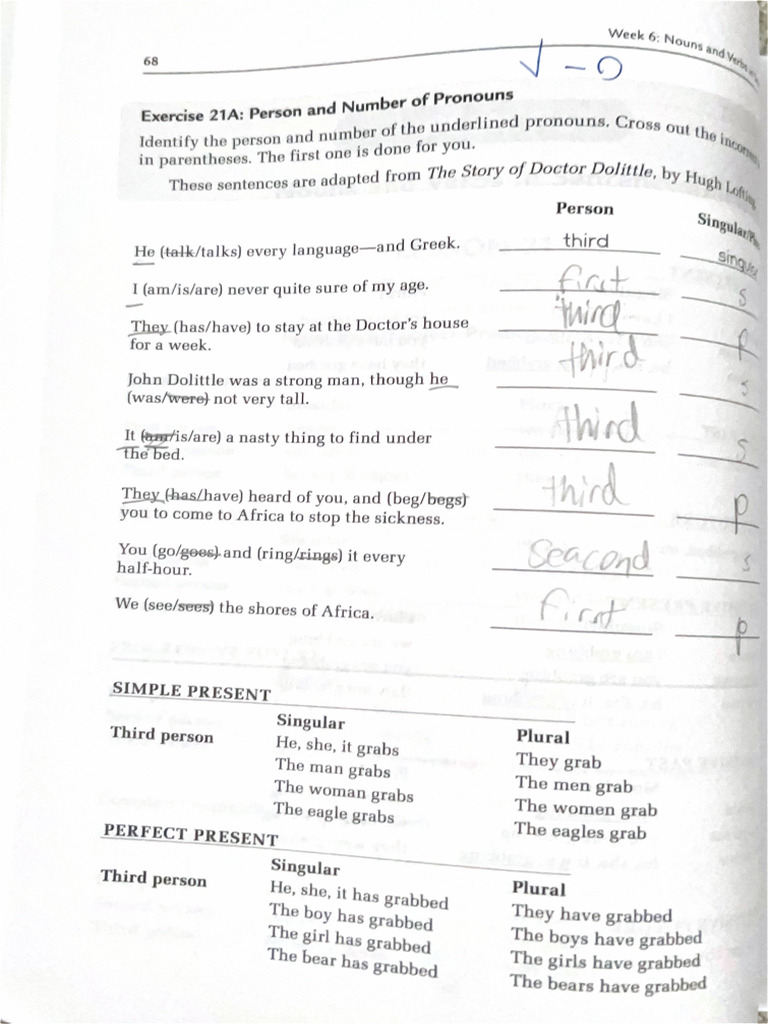 68
Week 6: Nouns and Verbs
✓ – 0
Exercise 21A: Person and Number of Pronouns
Identify the person and number of the underlined pronouns. Cross out the
in parentheses. The first one is done for you.
These sentences are adapted from The Story of Doctor Dolittle, by Hugh Lofting
Person Singular/
He (talk/talks) every language—and Greek. third
I (am/is/are) never quite sure of my age. first s
They (has/have) to stay at the Doctor's house third p
for a week.
John Dolittle was a strong man, though he third s
(was/were) not very tall.
It (am/is/are) a nasty thing to find under third s
the bed.
They (has/have) heard of you, and (beg/begs) third p
you to come to Africa to stop the sickness.
You (go/goes) and (ring/rings) it every Seacond s
half-hour.
We (see/sees) the shores of Africa. first p
SIMPLE PRESENT
Singular Plural
Third person He, she, it grabs They grab
The man grabs The men grab
The woman grabs The women grab
The eagle grabs The eagles grab
PERFECT PRESENT
Singular Plural
Third person He, she, it has grabbed They have grabbed
The boy has grabbed The boys have grabbed
The girl has grabbed The girls have grabbed
The bear has grabbed The bears have grabbed